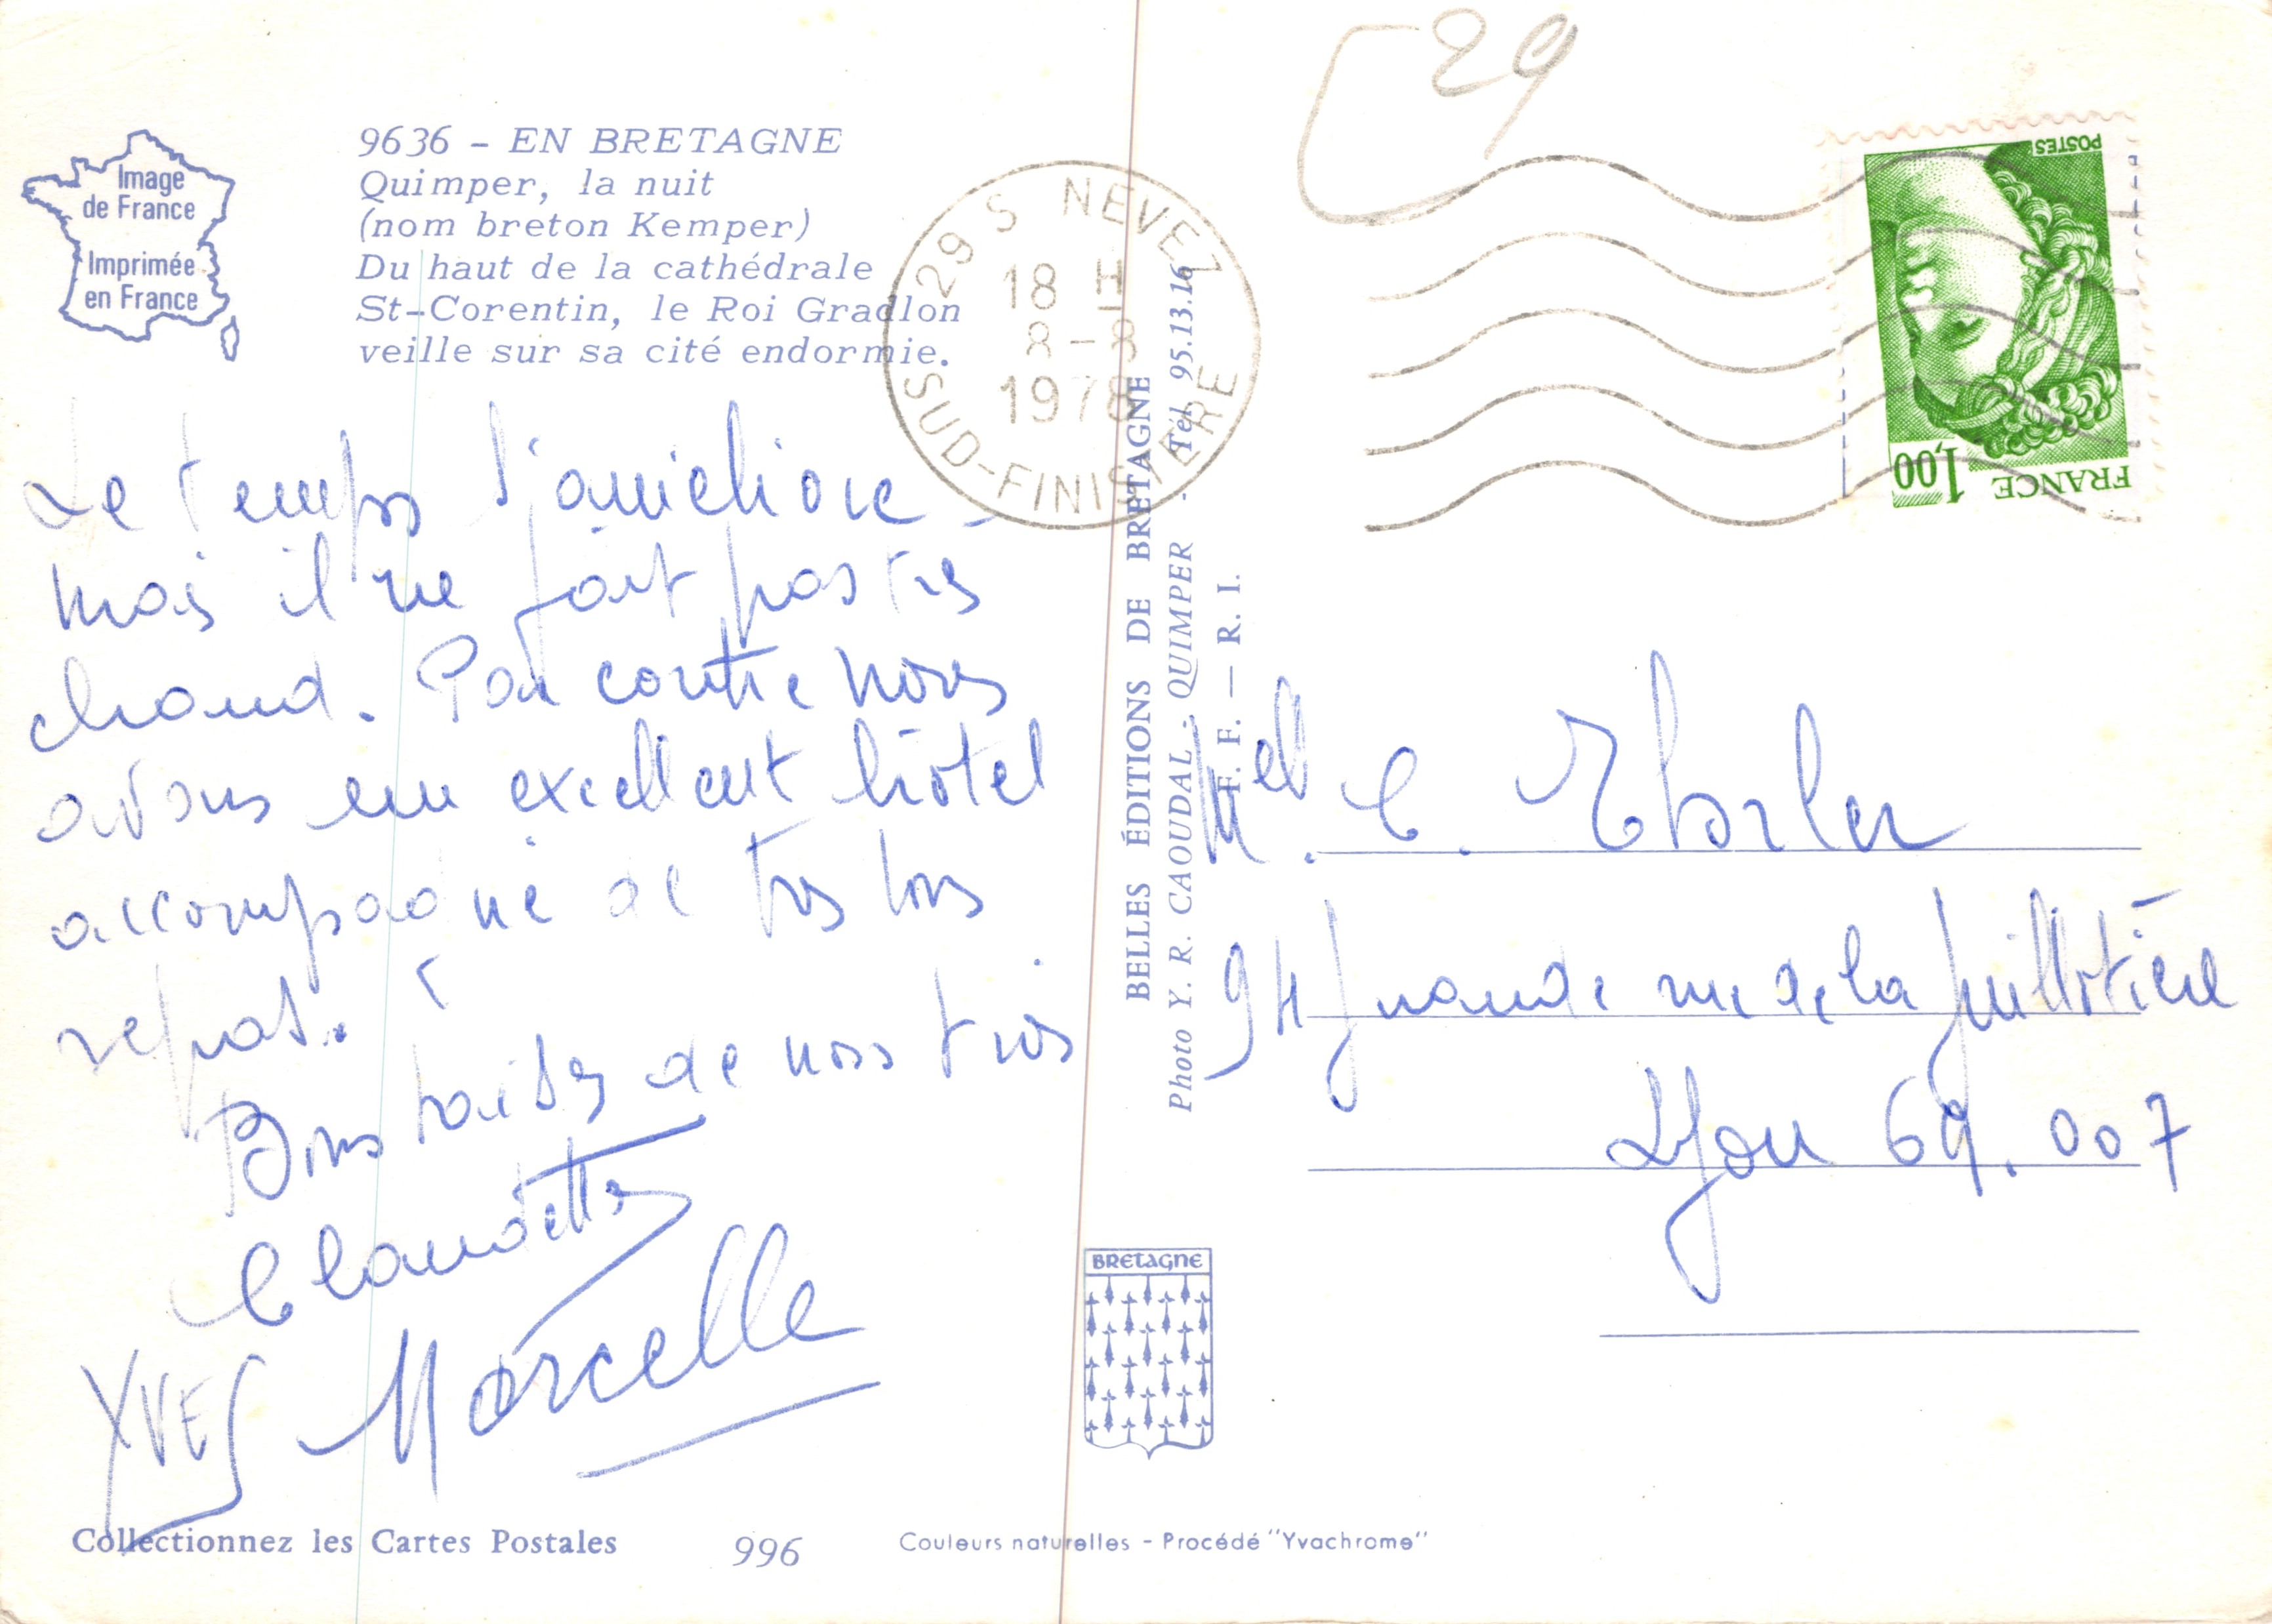 Image
de France
Imprimée
en France
9636 - EN BRETAGNE
Quimper, la nuit
(nom breton Kemper)
Du haut de la cathédrale
St-Corentin, le Roi Gradlon
veille sur sa cité endormie.
Le temps s'améliore -
mais il ne fait pas très
chaud. Par contre nous
avons un excellent hôtel
accompagné de très bons
repas.
Bons baisers de nous trois
Claudette
Marcelle
YVES
Collectionnez les Cartes Postales
996
Couleurs naturelles - Procédé "Yvachrome"
BELLES ÉDITIONS DE BRETAGNE
Photo Y. R. CAOUDAL - QUIMPER - Tél. 95.13.16
F. F. — R. I.
29 S NEVEZ
18 H
8-8
1978
SUD-FINISTERE
29
POSTES
1,00
FRANCE
Mell. C.
94 grande rue de la guillotière
Lyon 69.007
BRETAGNE